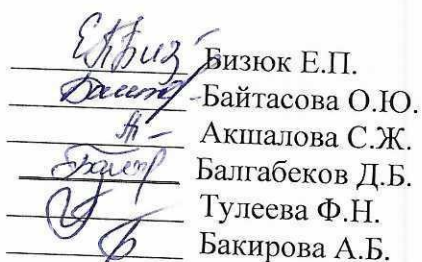 Бизюк Е.П.
Байтасова О.Ю.
Акшалова С.Ж.
Балгабеков Д.Б.
Тулеева Ф.Н.
Бакирова А.Б.